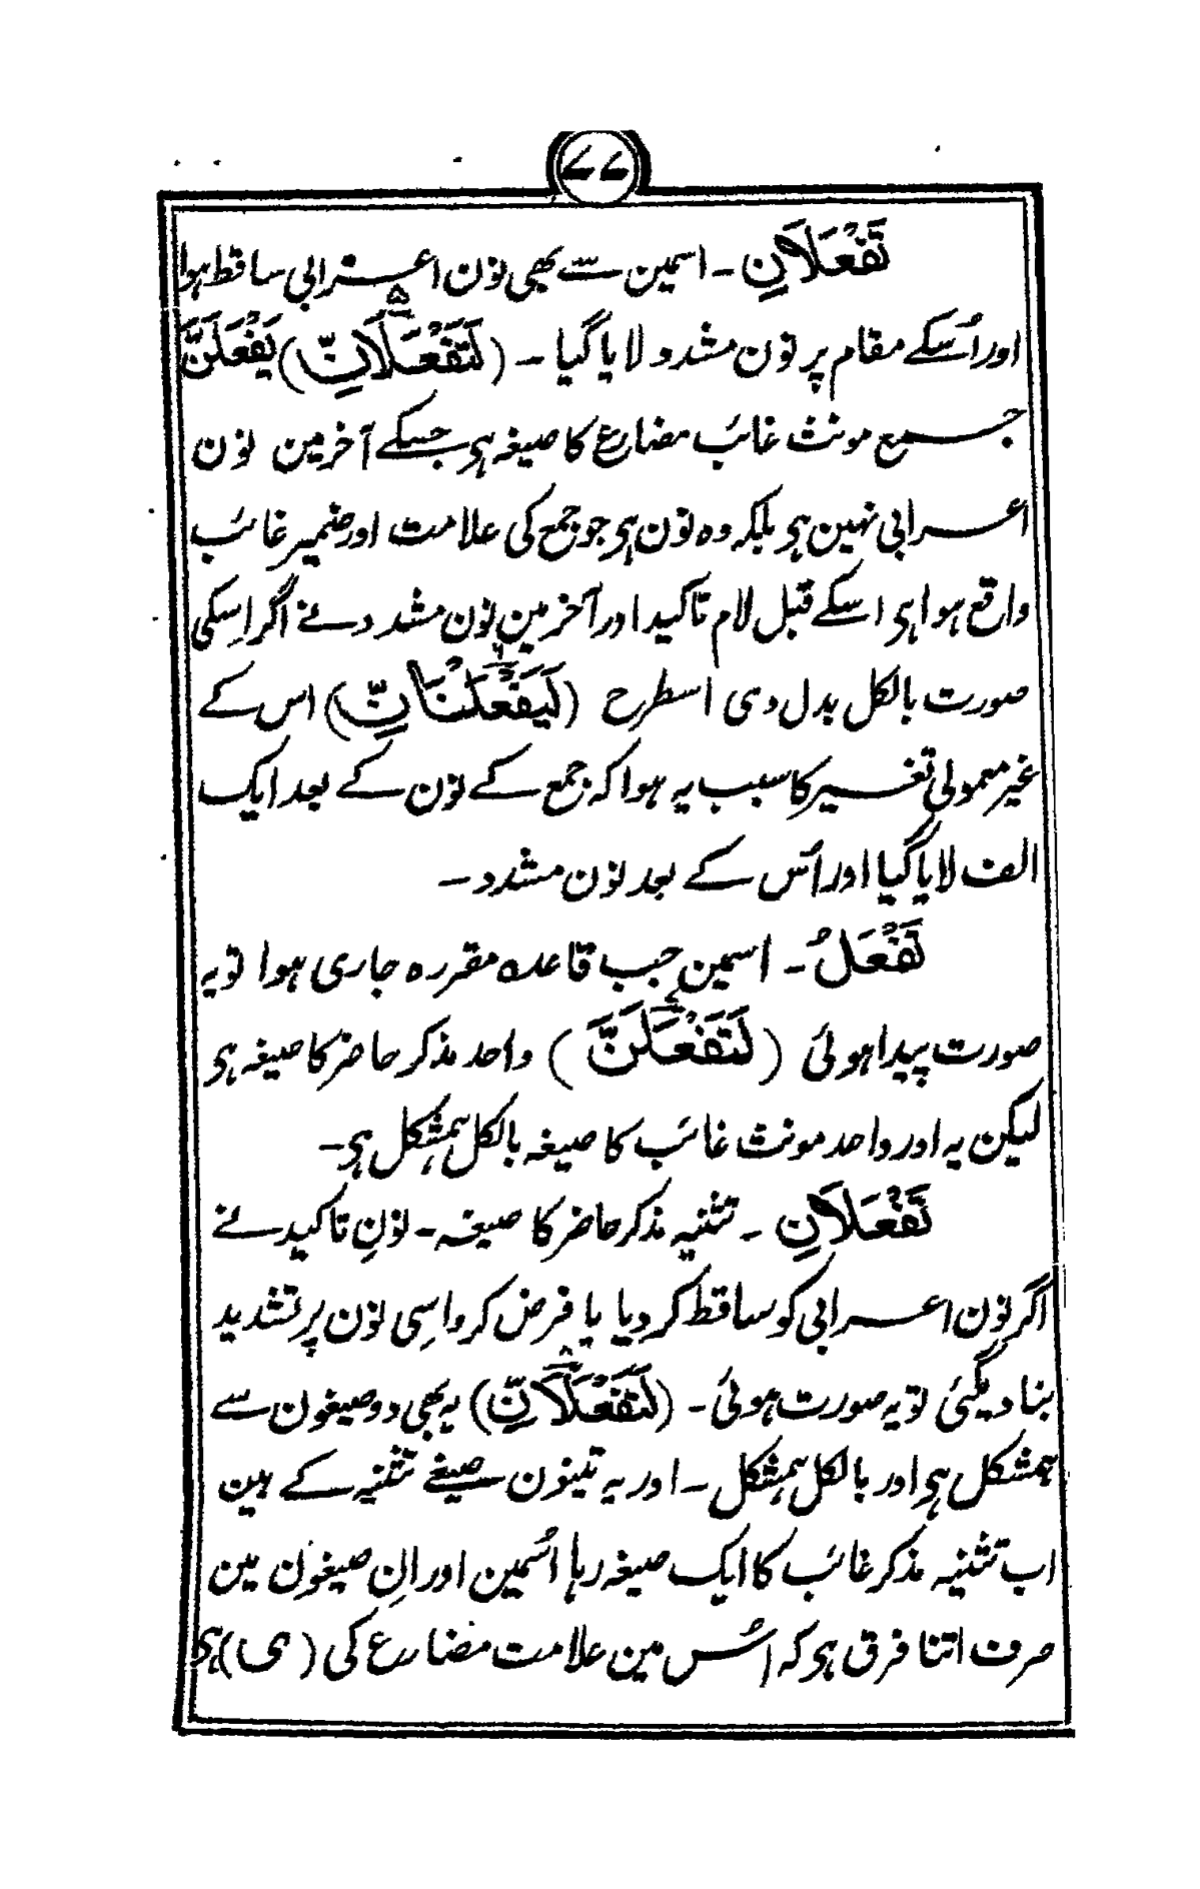 ۷۷
تَفْعَلَانِ ۔ اسمین سے بھی نون اعرابی ساقط ہوا
اور اُسکے مقام پر نون مشدد لایا گیا ۔ (لَتَفْعَلَانِّ) یَفْعَلْنَ
جمع مونث غائب مضارع کا صیغہ ہی جسکے آخر مین نون
اعرابی نہین ہی بلکہ وہ نون ہی جو جمع کی علامت اور ضمیر غائب
واقع ہوا ہی اسکے قبل لام تاکید اور آخر مین نون مشدد نے اگر اِسکی
صورت بالکل بدل دی اسطرح (لَیَفْعَلْنَانِّ) اس کے
غیر معمولی تغیر کا سبب یہ ہوا کہ جمع کے نون کے بعد ایک
الف لایا گیا اور اُس کے بعد نون مشدد ۔
تَفْعَلُ ۔ اسمین جب قاعدہ مقررہ جاری ہوا تو یہ
صورت پیدا ہوئی (لَتَفْعَلَنَّ) واحد مذکر حاضر کا صیغہ ہی
لیکن یہ اور واحد مونث غائب کا صیغہ بالکل ہمشکل ہی ۔
تَفْعَلَانِ ۔ تثنیہ مذکر حاضر کا صیغہ ۔ نونِ تاکید نے
اگر نون اعرابی کو ساقط کر دیا یا فرض کرو اسِی نون پر تشدید
بنا دیگئی تو یہ صورت ہوئی ۔ (لَتَفْعَلَانِّ) یہ بھی دو صیغون سے
ہمشکل ہی اور بالکل ہمشکل ۔ اور یہ تینون صیغے تثنیہ کے ہین
اب تثنیہ مذکر غائب کا ایک صیغہ رہا اُسمین اور اِن صیغون مین
صرف اتنا فرق ہی کہ اُس مین علامت مضارع کی (ی) ہی